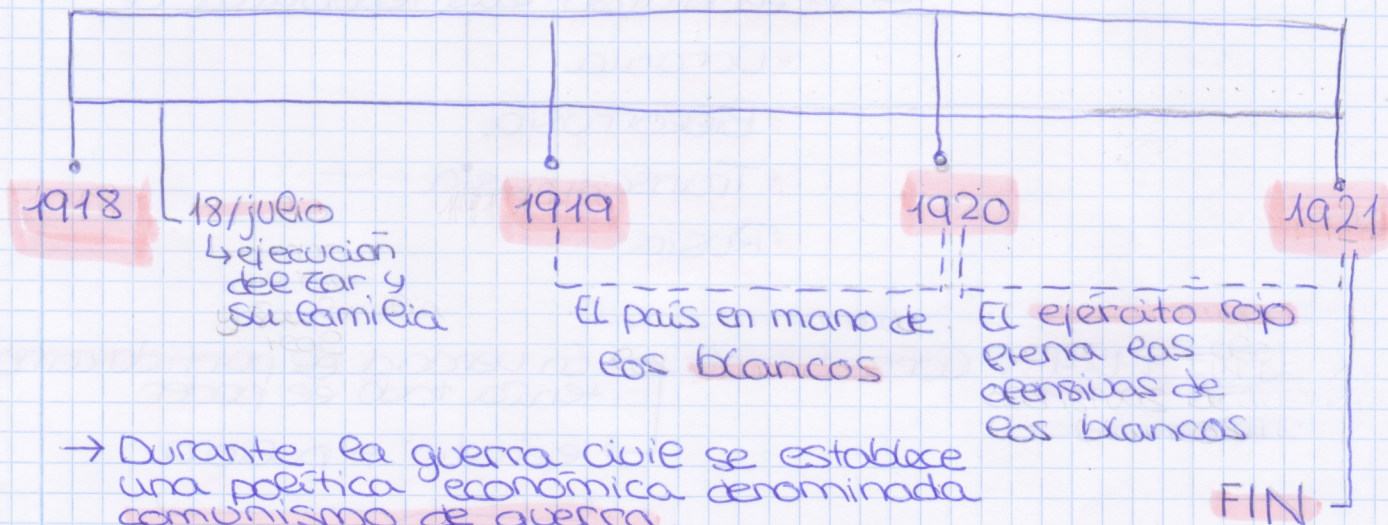 1918
18/julio
↳ ejecución
del zar y
su familia
1919
El país en mano de
los blancos
1920
El ejército rojo
frena las
ofensivas de
los blancos
1921
FIN
→ Durante la guerra civil se establece
una política económica denominada
comunismo de guerra